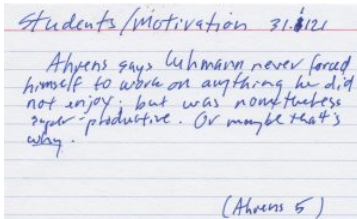 Students/Motivation 31.8121
Ahrens says Luhmann never forced
himself to work on anything he did
not enjoy; but was nonetheless
super-productive. Or maybe that's
why.
(Ahrens 5)